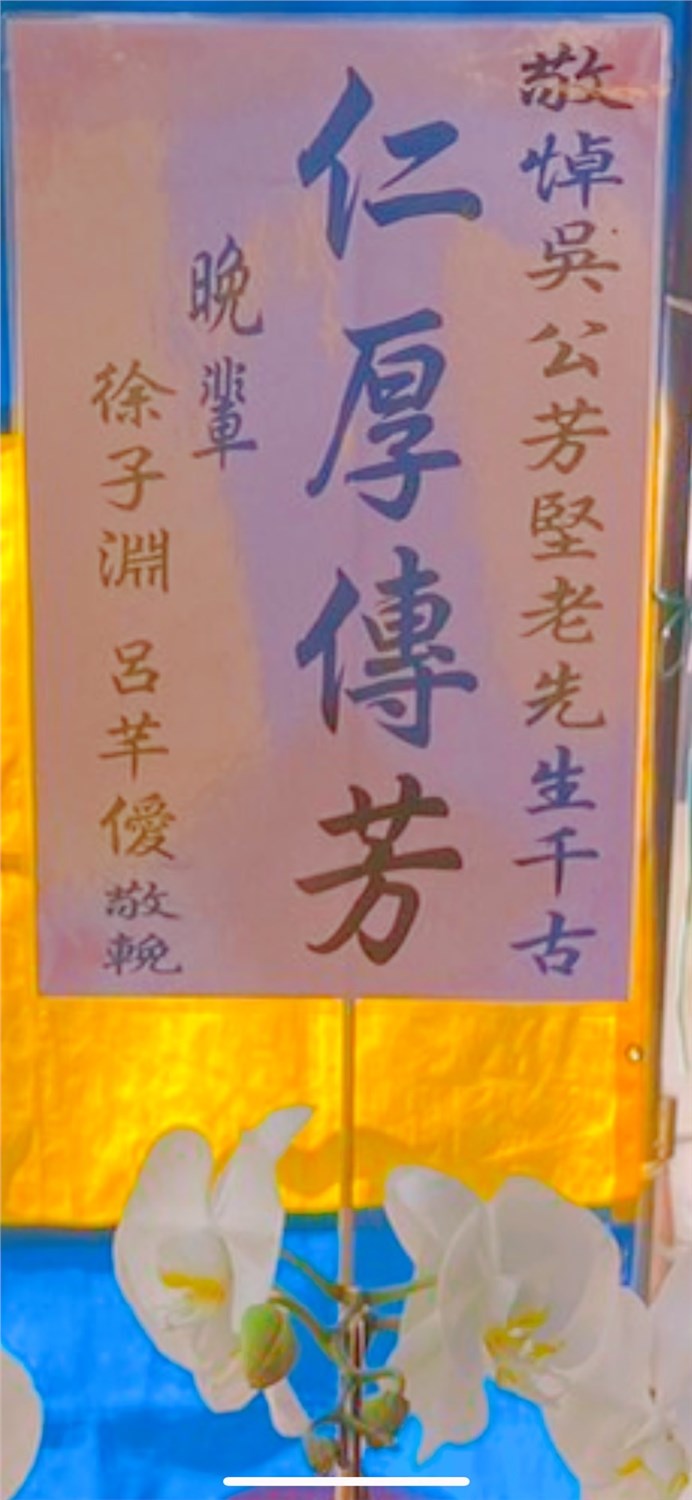 敬悼吳公芳堅老先生千古
仁厚傳芳
晚輩
徐子淵 呂芊優敬輓